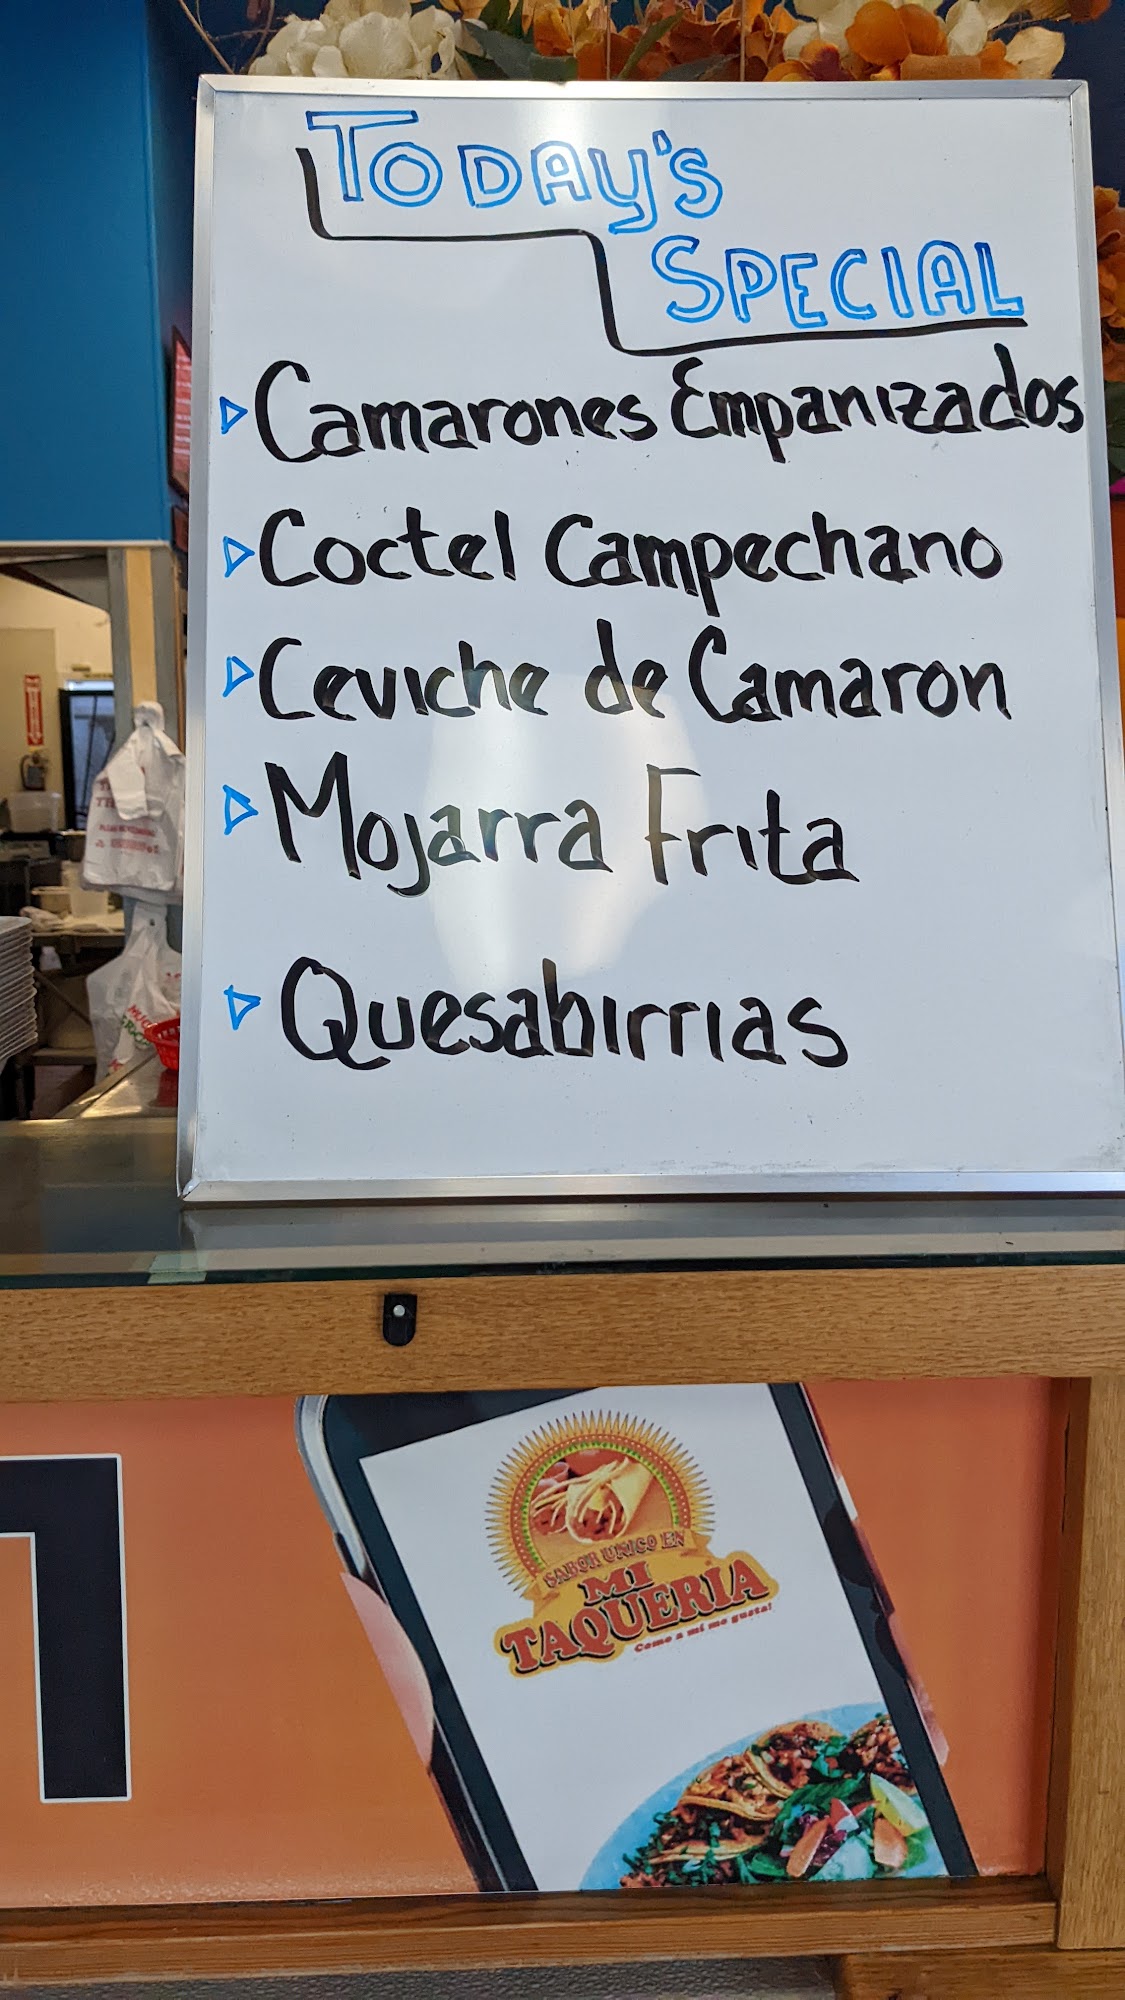 TODAY'S
SPECIAL
Camarones Empanizados
Coctel Campechano
Ceviche de Camaron
Mojarra Frita
Quesabirrias
SABOR UNICO EN
MI
TAQUERIA
Como a mi me gusta!